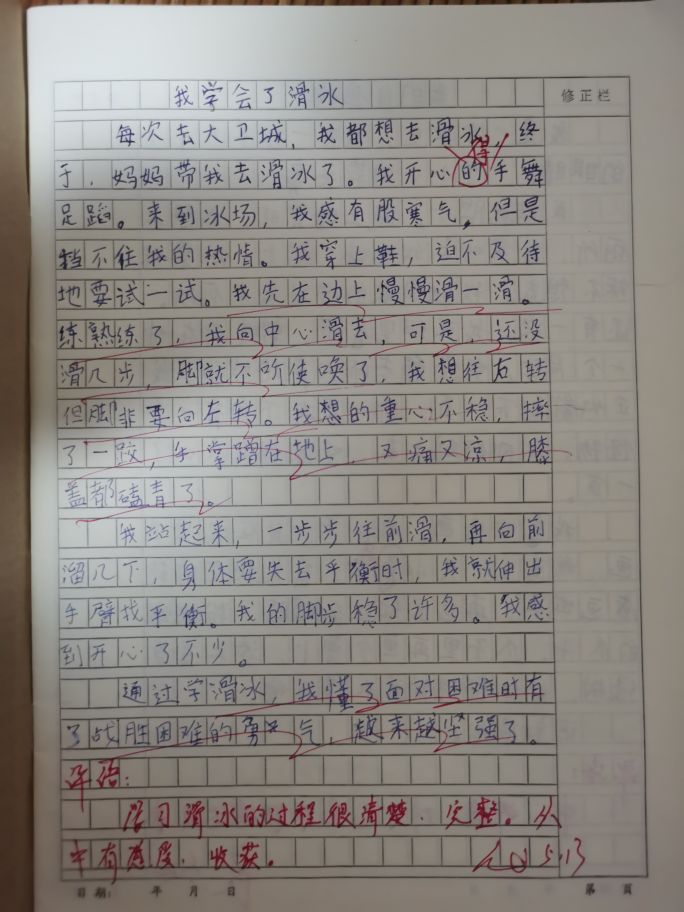 我学会了滑冰
修正栏
每次去大卫城，我都想去滑冰，终
得
于，妈妈带我去滑冰了。我开心的手舞
足蹈。来到冰场，我感有股寒气，但是
挡不住我的热情。我穿上鞋，迫不及待
地要试一试。我先在边上慢慢滑一滑。
练熟练了，我向中心滑去，可是，还没
滑几步，脚就不听使唤了，我想往右转
但脚非要向左转。我想的重心不稳，摔
了一跤，手掌蹭在地上，又痛又凉，膝
盖都磕青了。
我站起来，一步步往前滑，再向前
溜几下，身体要失去平衡时，我就伸出
手臂找平衡。我的脚步稳了许多。我感
到开心了不少。
通过学滑冰，我懂了面对困难时有
了战胜困难的勇气，越来越坚强了。
评语：
学习滑冰的过程很清楚、完整。从
中有感度、收获。 5.13
日期： 年 月 日 第 页